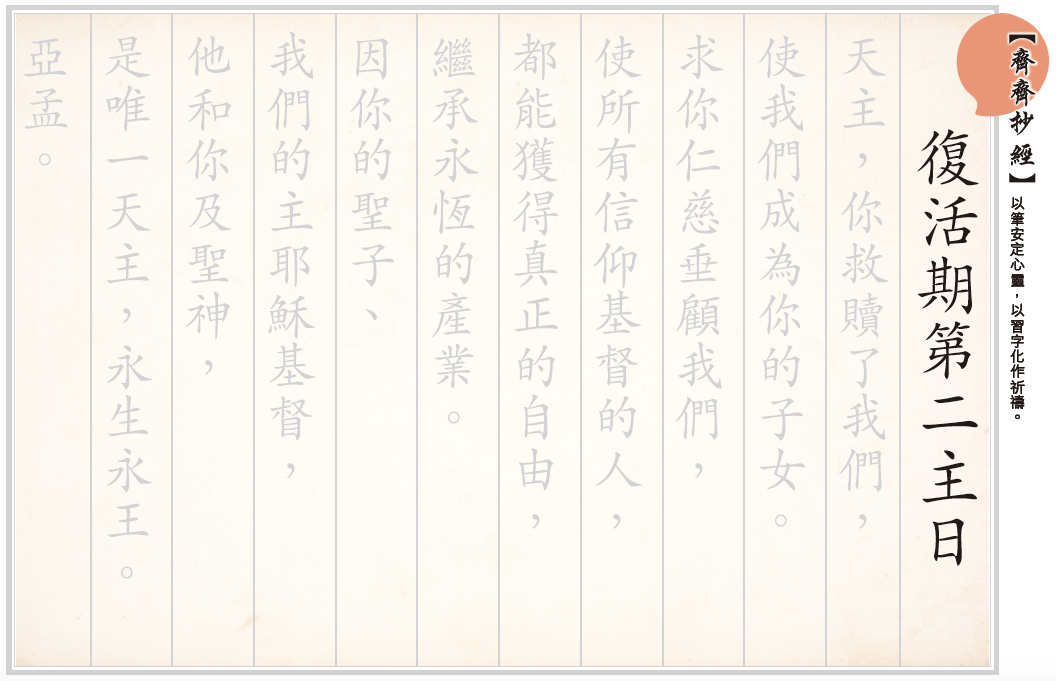 【齊齊抄經】以筆安定心靈，以習字化作祈禱。
復活期第二主日
天主，你救贖了我們，
使我們成為你的子女。
求你仁慈垂顧我們，
使所有信仰基督的人，
都能獲得真正的自由，
繼承永恆的產業。
因你的聖子、
我們的主耶穌基督，
他和你及聖神，
是唯一天主，永生永王。
亞孟。